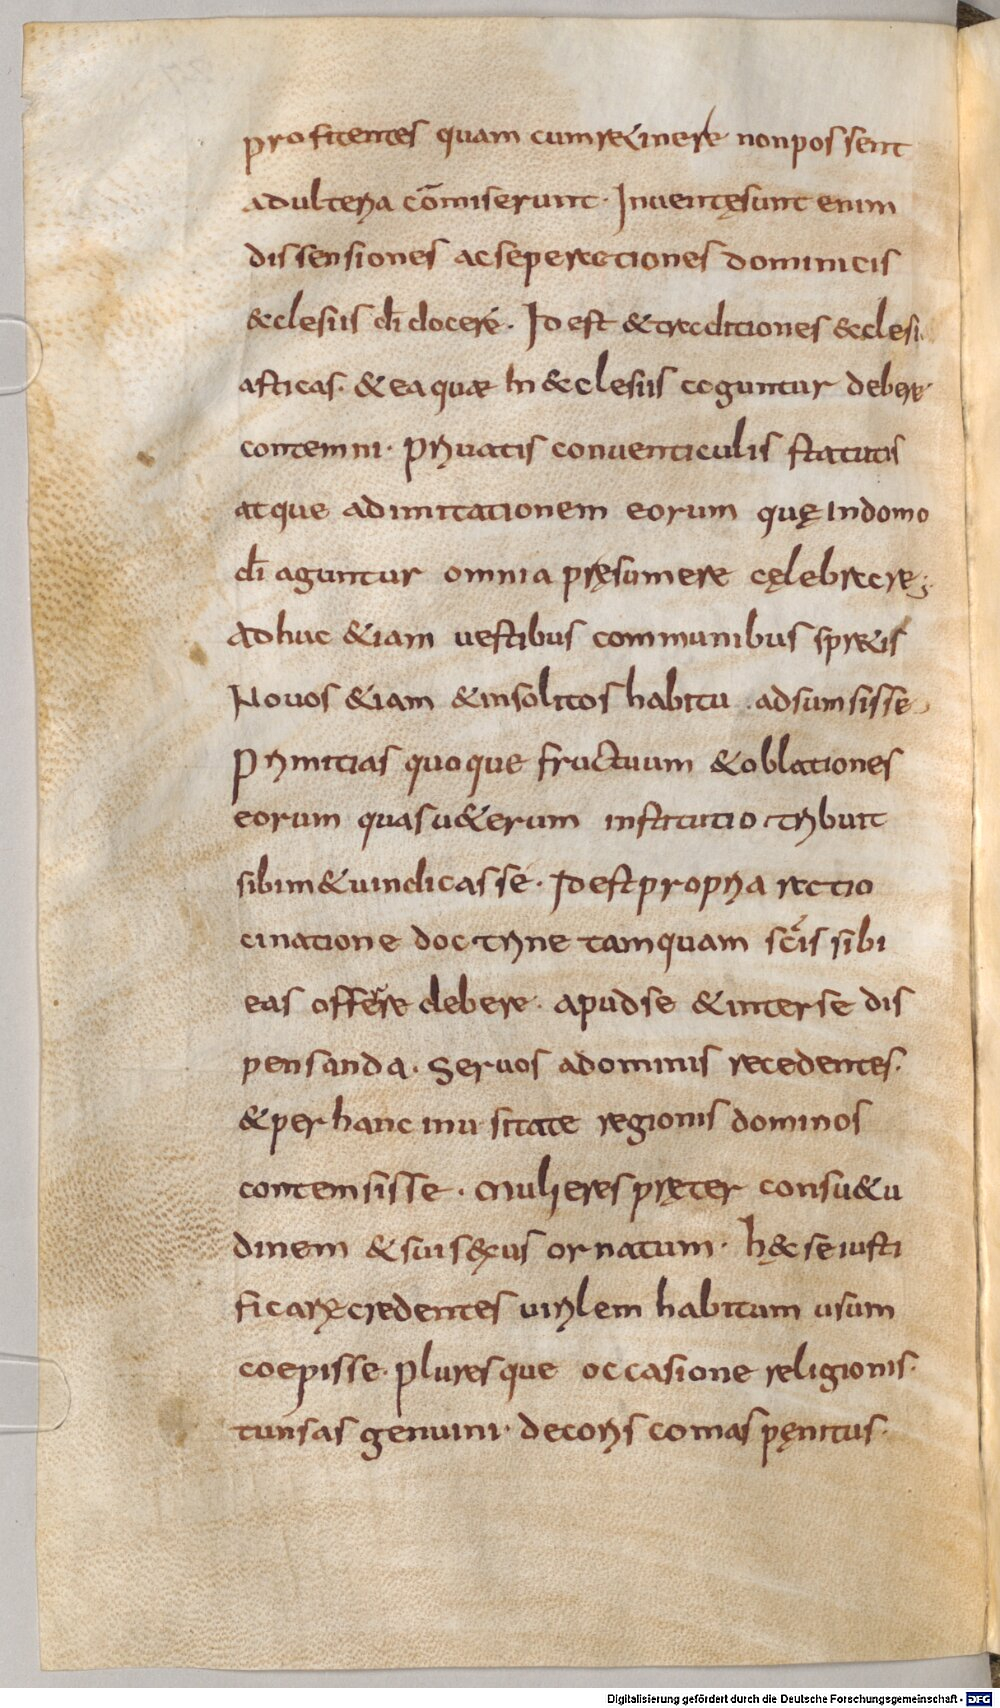 profitentes quam cum re&inere non possent
adulteria cōmiserunt. Inuentęsunt enim
dissensiones ac seperationes dominicis
&clesiis di docere. Id est & traditiones &clesi
asticas. & ea quæ in &clesiis coguntur debere
contemni. Priuatis conuenticulis statutis
atque adimitationem eorum quę indomo
di aguntur omnia pręsumere cęlebrare;
Adhuc &iam uestibus communibus spr&is
Nouos &iam & insolitos habitu adsumsisse
Primitias quoque fructuum & oblationes
eorum quas u&erum institutio tribuit
sibim& uindicasse. Id est propria ratio
cinatione doctrine tamquam scis sibi
eas offerre debere. apud se & inter se dis
pensanda. Seruos adominis recedentes.
& per hanc inusitate regionis dominos
contemsisse. Mulieres pręter consu&u
dinem & suis&ius ornatum. hęc se iusti
ficari credentes uirilem habitum usum
coepisse. pluresque occasione religionis.
tunsas genuini. decoris comas pęnitus.
Digitalisierung gefördert durch die Deutsche Forschungsgemeinschaft - DFG